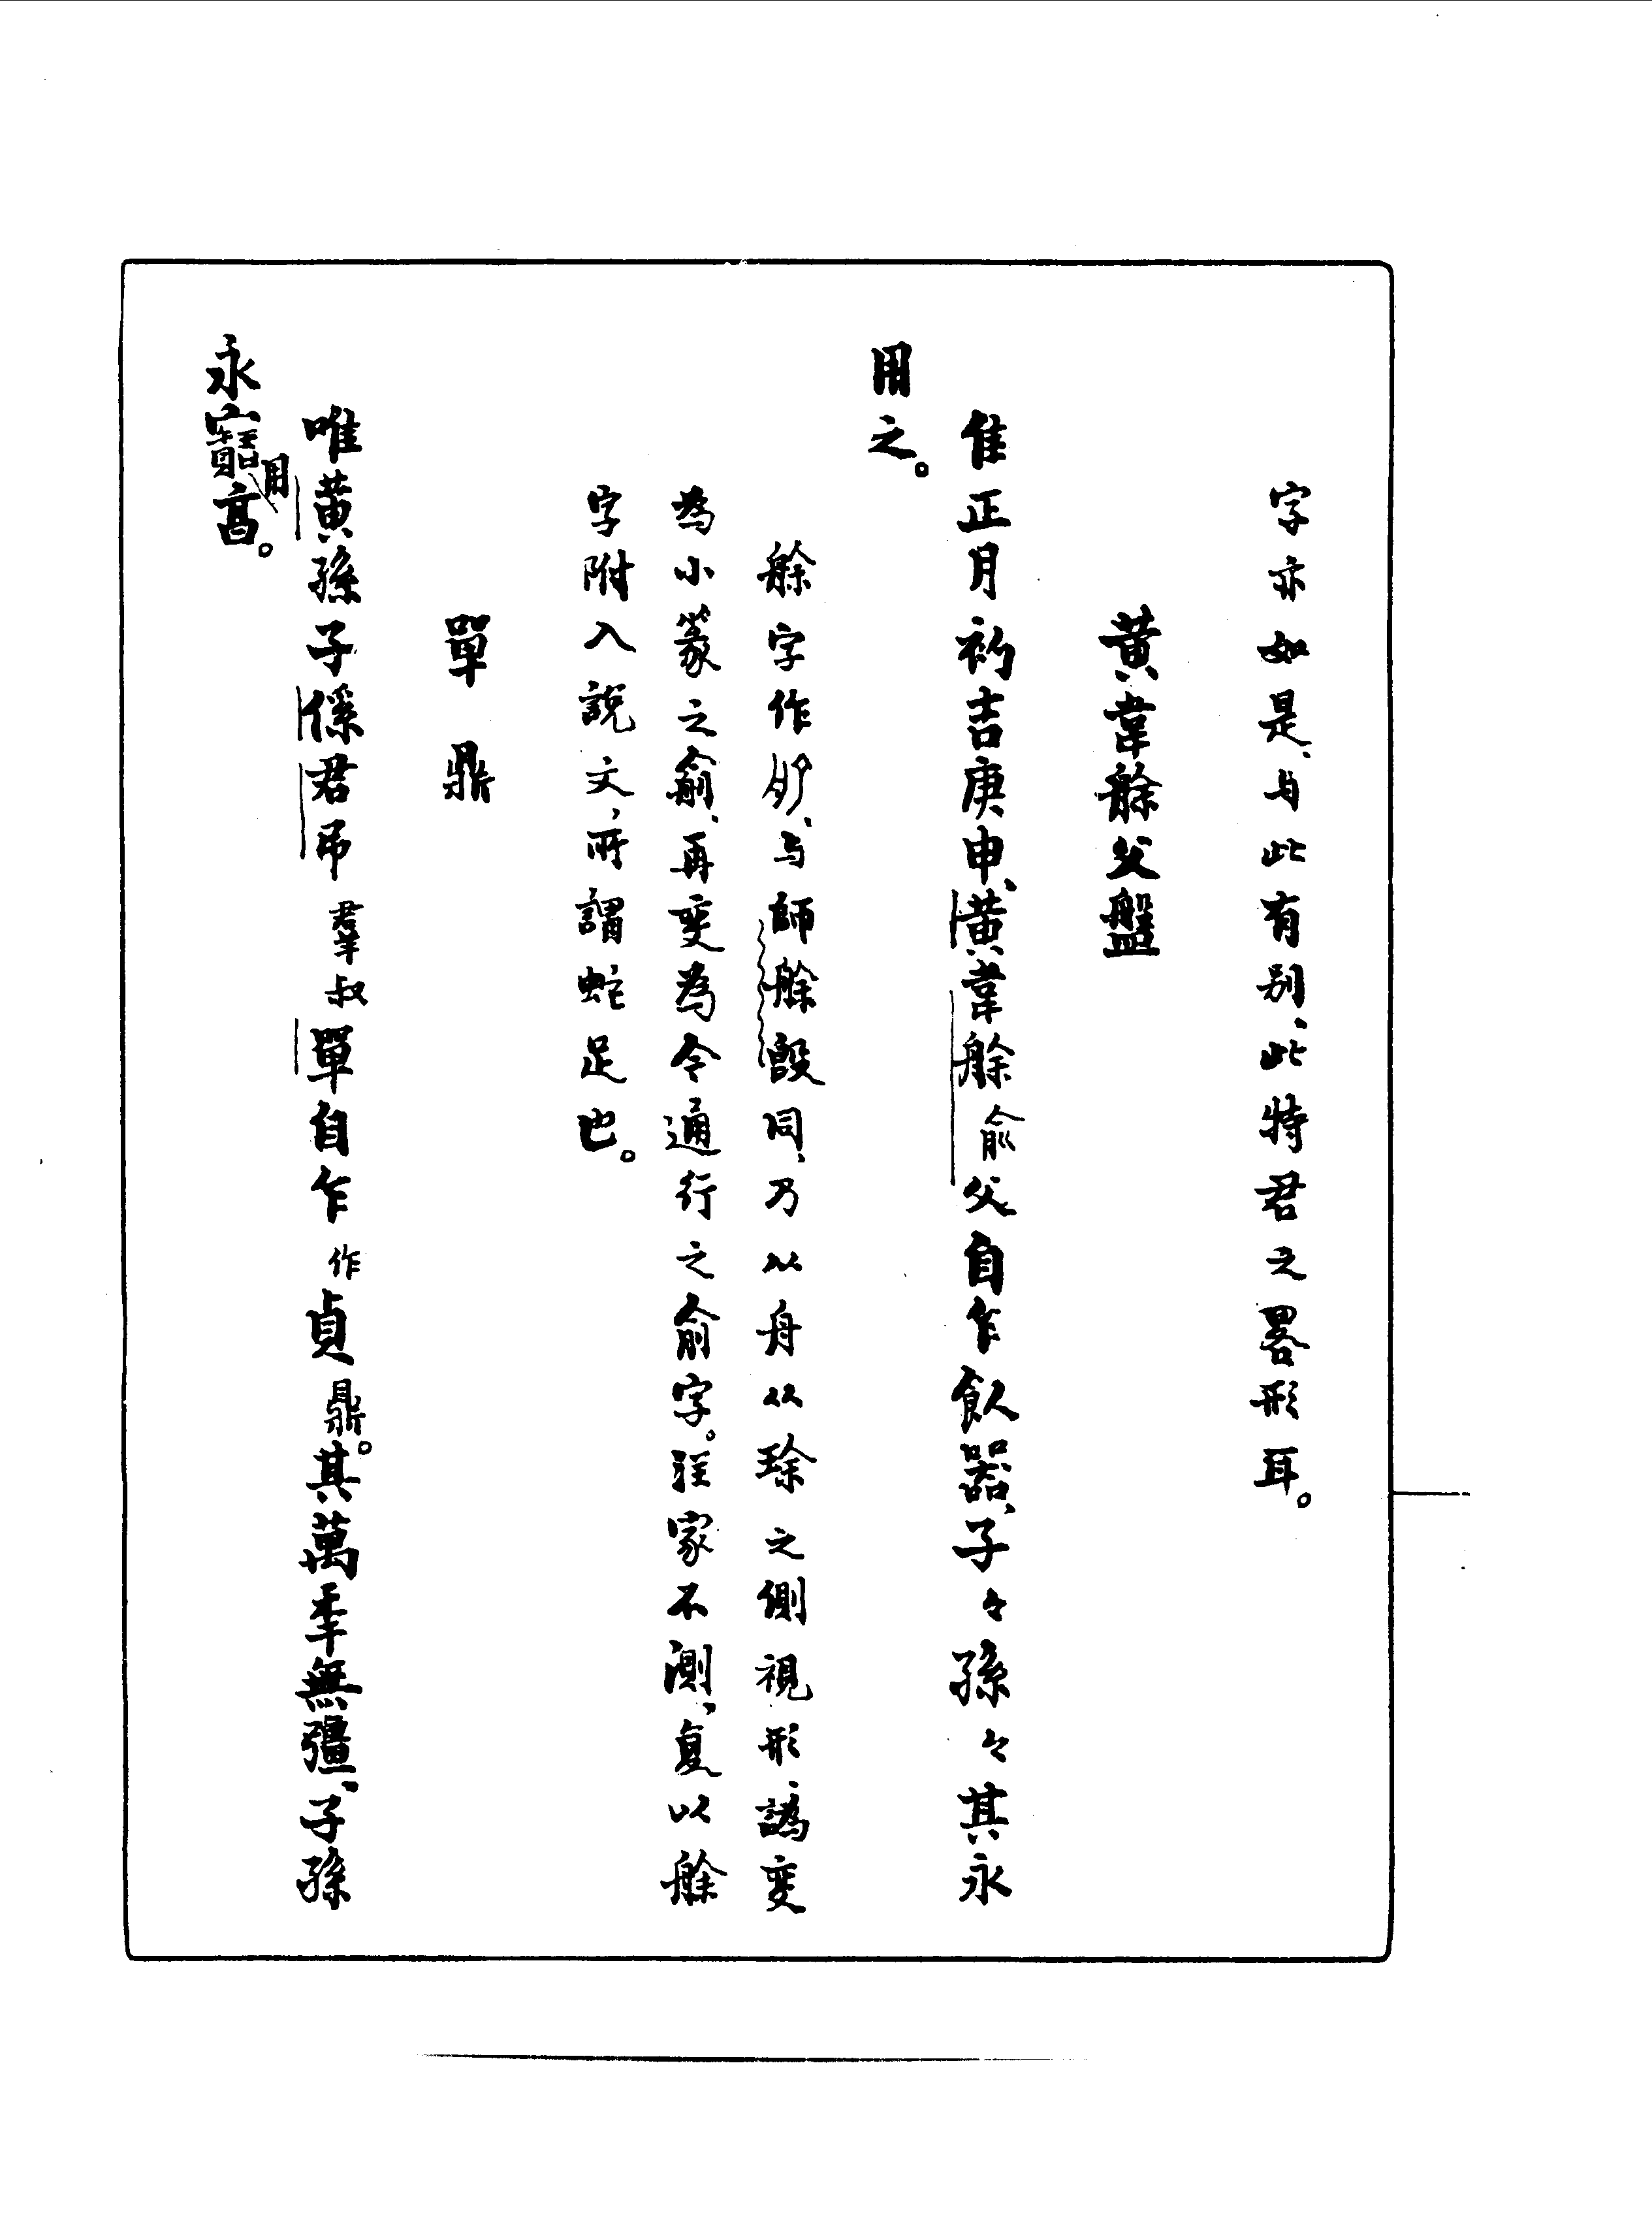 字亦如是、与此有别、此特君之畧形耳。
黄韋艅父盤
隹正月初吉庚申、黄韋艅俞父自乍飲器、子々孫々其永
用之。
艅字作、与師艅𣪘同、乃从舟从琭之側視形、譌変
為小篆之俞、再変為今通行之俞字。注家不測、复以艅
字附入説文，所謂蛇足也。
單鼎
唯黄孫子傒君弔羣叔單自乍作貞鼎。其萬年無彊、子孫
永寶用亯。